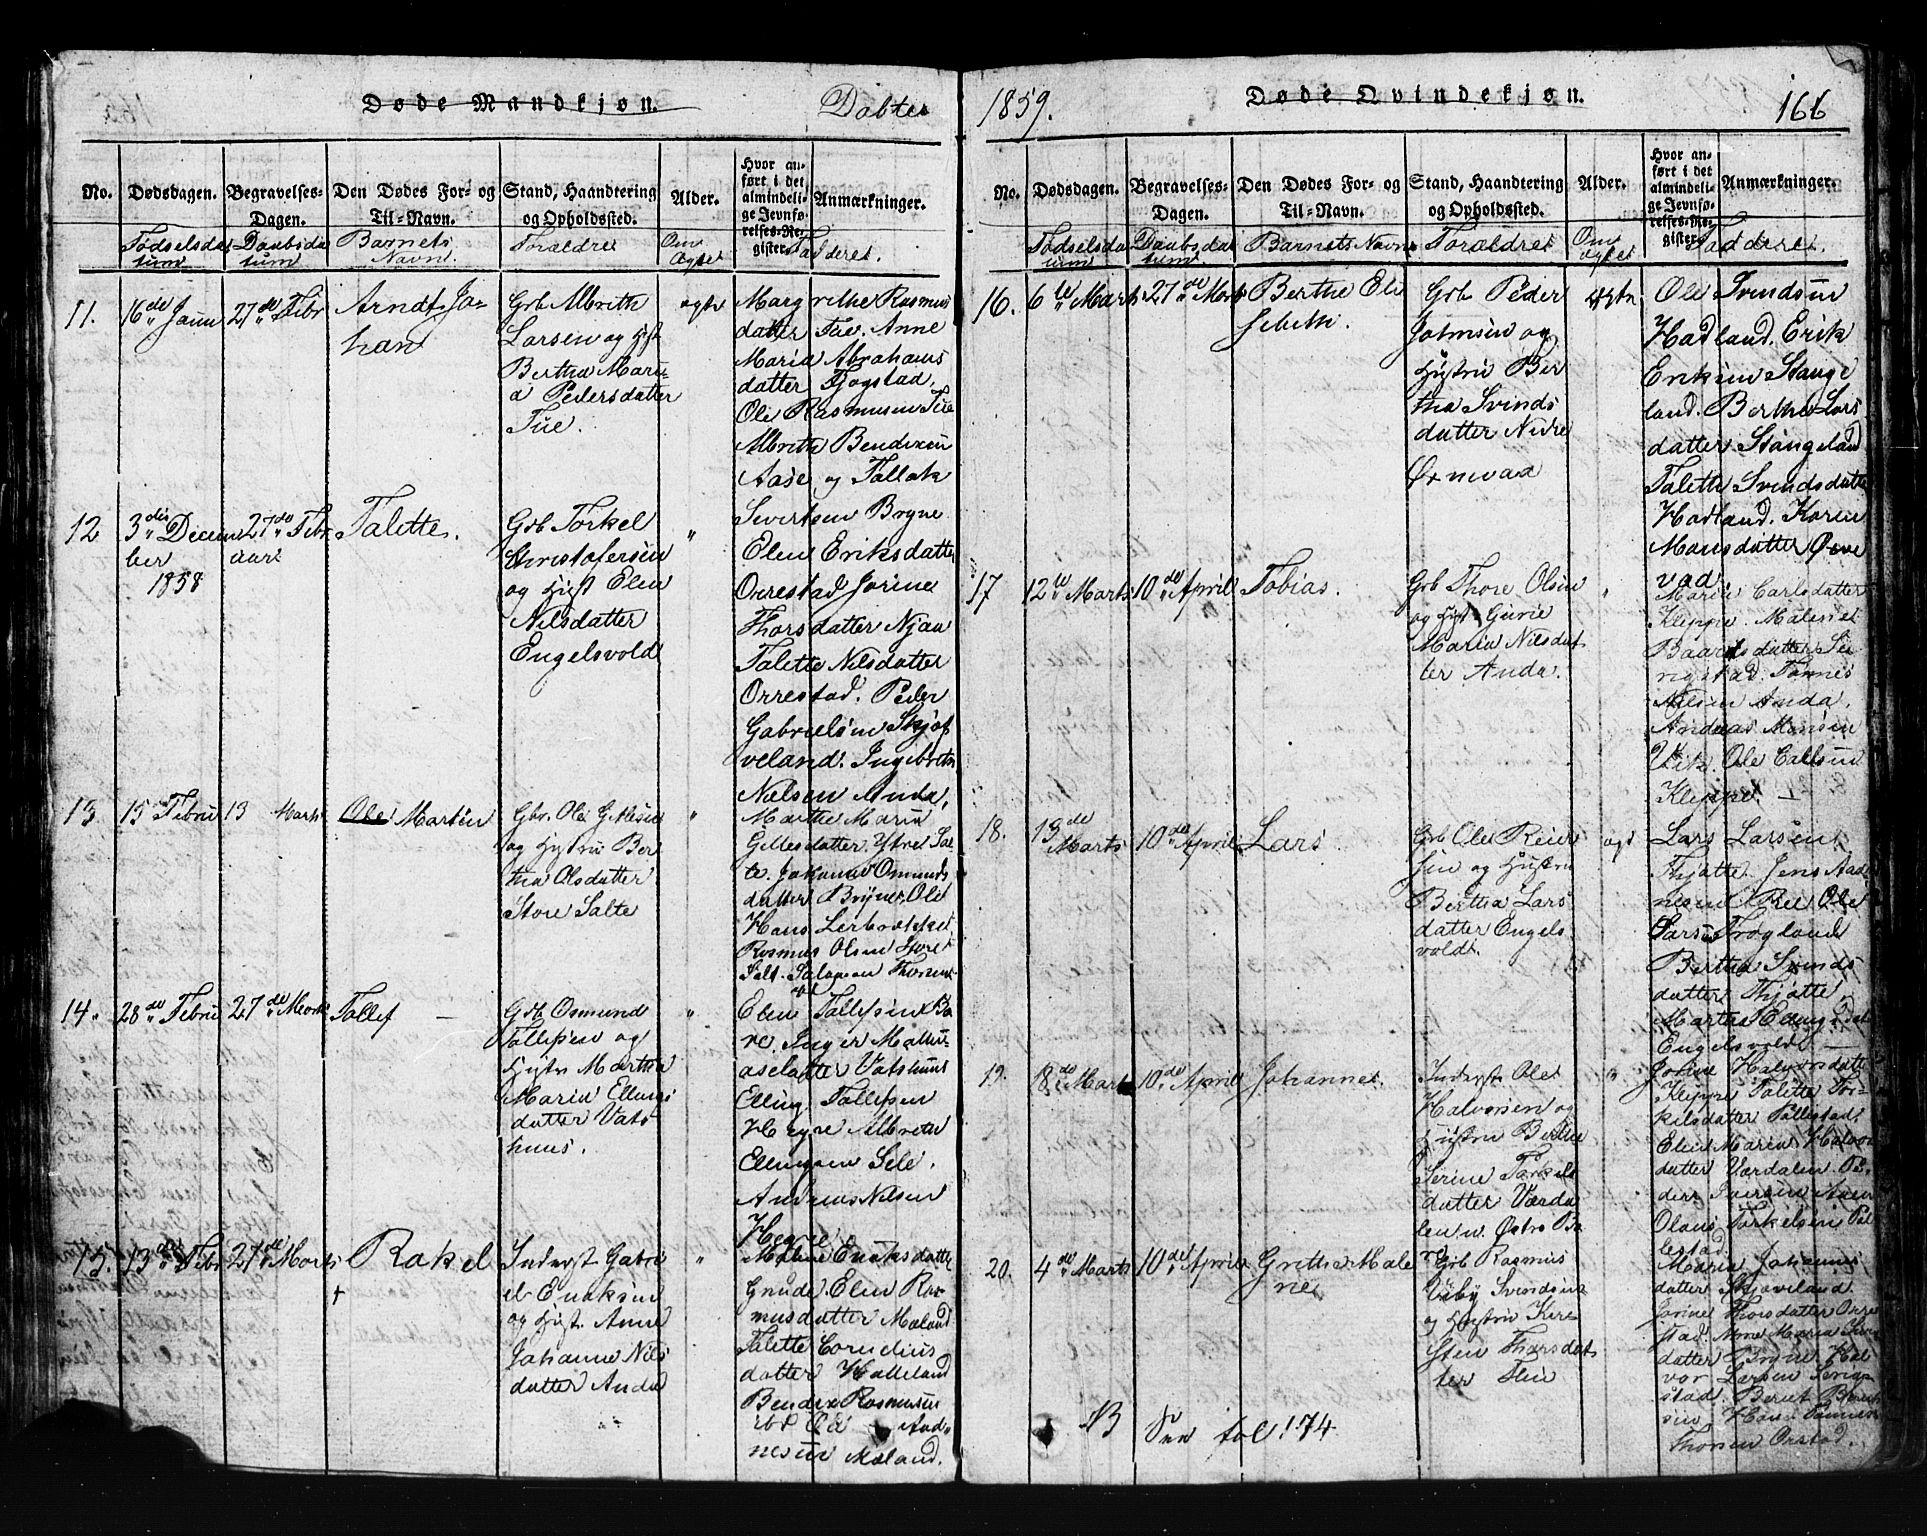 Døde Mandkjøn. Døbte
No. Dødsdagen. Begravelses-Dagen. Den Dødes For- og Til-Navn. Stand, Haandtering og Opholdssted. Alder. Hvor anført i det almindelige Jevnførelses-Register. Anmærkninger.
Fødselsdatum Daabsdatum Barnets Navn. Forældre Om Ægte Fadderet.
11. 16de Janu 27de Febr Arndt Johan
Grb Albreth
Larsen og Hst
Bertha Mari-
a Pedersdatter
Tue.
ægte
Margrethe Rasmus
datter Tue. Anne
Maria Abrahams
datter Fjogstad.
Ole Rasmusen Tue
Albreth Bendixen
Aase og Tollak
Sivertsen Bryne
12 3die Decem
ber
1858
27de Febr
uar
Talette.
Grb Torkel
Christofersen
og Hust Elen
Nilsdatter
Engelsvold
"
Elen Eriksdatter
Orrestad Jorine
Thorsdatter Njaa
Talette Nilsdatter
Orrestad. Peder
Gabrielsen Skjæf
veland. Ingebret
Nielsen Anda.
13. 15 Febru 13 Marts Ole Martin
Gbr. Ole Gitlesen
og Hustru Ber
tha Olsdatter
Store Salte
"
Marthe Maria
Gitlesdatter Ytre Sal
te. Johanne Osmunds
datter Bryne. Ole
Hans
Rasmus Olsen Store
Salt. Salomon
14. 28de Febru 27de Marts Tollef
Grb Osmund
Tollefsen og
Hustr Martha
Maria Ellings
datter Vats
huus.
"
Elen Tollefsen Bo
re. Inger
datter Vatshuus
Elling Tollefsen
Hegre Albreth
Ellingsen Sele.
Andreas Nilsen
Hegre.
15. 13de Febr 27de Marts Rakel
+
Inderst Gabri
el Enoksen
og Hust. Anne
Johanne Nils
datter Anda
"
Malene Enoksdatter
Grude. Elen Ras
musdatter Mæland
Talette Cornelius
datter Halleland
Bendix Rasmusen
ibd Ole And
nesen Mæland.
1859. Døde Qvindekjøn. 166
No. Dødsdagen. Begravelses-Dagen. Den Dødes For- og Til-Navn. Stand, Haandtering og Opholdssted. Alder. Hvor anført i det almindelige Jevnførelses-Register. Anmærkninger.
Fødselsdatum Daabsdatum Barnets Navn Forældret Om ægtet Fadderet.
16. 6te Marts 27de Marts Berthe Eli
sebeth.
Grb Peder
Johnsen og
Hustru Ber
tha Svinds
datter Nedre
Ørevaad
Ægte
Ole Svindsen
Hadland. Erik
Eriksen Stange
land. Berthe Lars
datter Stangeland
Talette Svindsdatter
Hadland. Karen
Monsdatter Øre
vad
17 12te Marts 10de April Tobias.
Grb Thore Olsen
og Hust Gurie
Maria Nilsdat
ter Anda.
"
Marie Carlsdatter
Kleppe. Malene
Baardsdatter Se
rigstad. Tønnes
Nilsen Anda.
Andreas Monsen
Vik Ole Callsen
Kleppe. —
18. 13de
Marts
10de April Lars.
Grb Ole Reier
sen og Hustru
Bertha Lars
datter Engels
voldt.
ægt
Lars Larsen
Thjøtte. Jens Aad
nesen Ree Ole
Larsen Frøyland
Bertha Svinds
datter Thjøtte.
Martha Ellingsdat
Engelsvold —
19. 8de Marts 10de April Johannes.
Inderst Ole
Halvorsen og
Hustru Berthe
Serine Torkels
datter Værda
len u. Østre Bo
re
"
Jorine Halvorsdatter
Kleppe Talette Tor
kilsdatter Pollestad
Elen Maria Halvor
datter Værdalen. Pe
der Iversen
Olaus Torkelsen Pol
lestad.
20. 4de Marts 10de April Grethe Male
ne
Grb Rasmus
Viby Svendsen
og Hustru Kir
sten Thorsdat
ter
Maria Johannes
datter Skjæveland.
Jorine Thorsdatter Orre
stad. Anne Maria
datter Bryne Hal
vor Larsen Serig
stad. Berent Berent
sen
Thorsen Orstad.
NB See fol 174